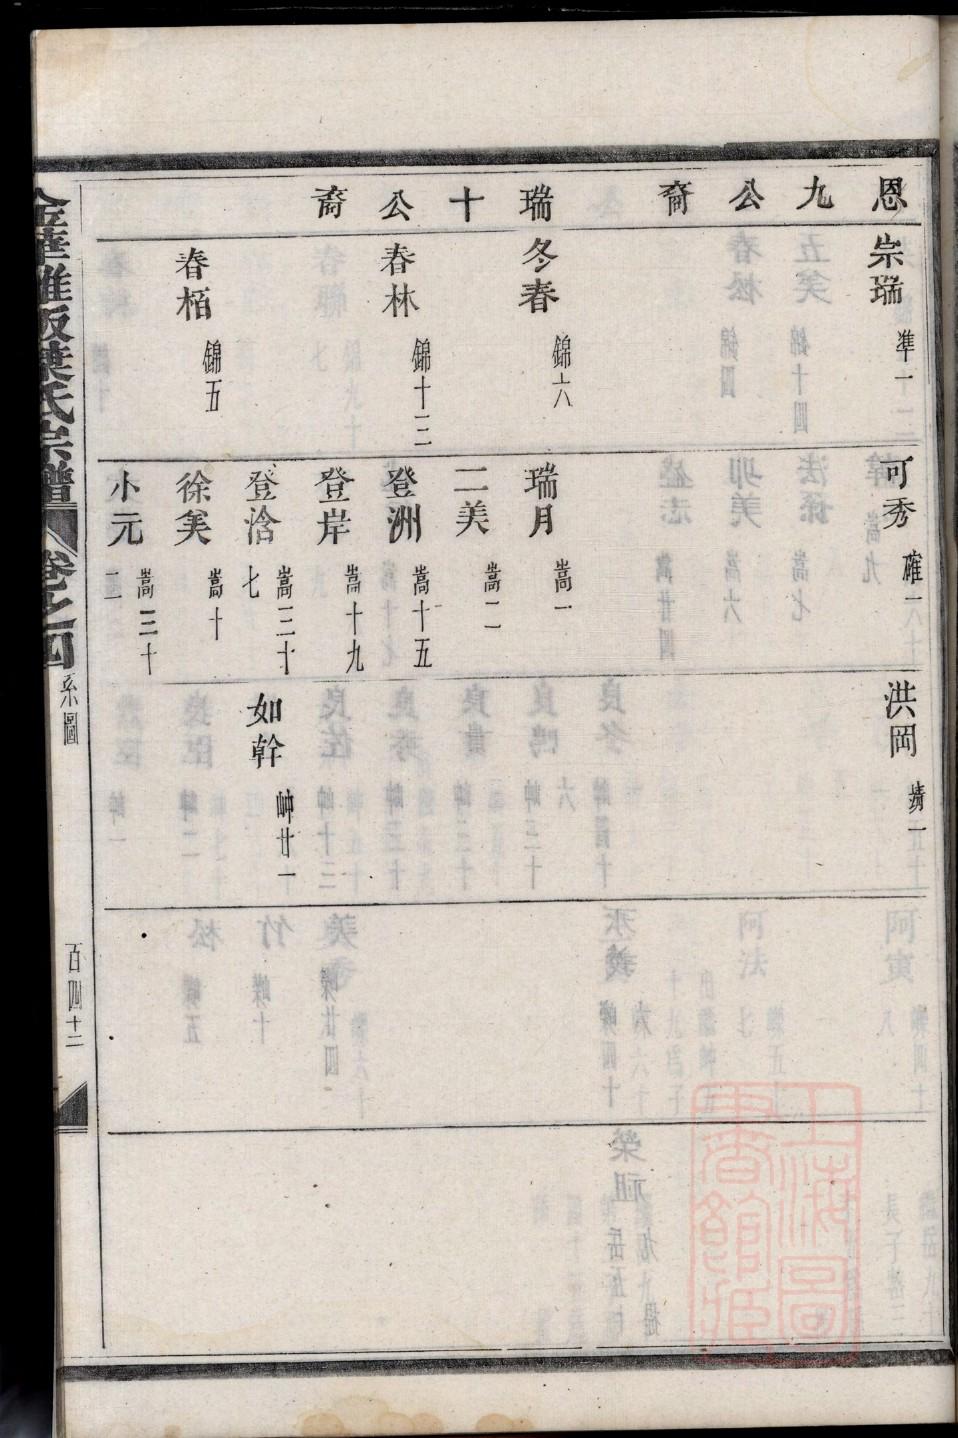 恩九公裔 瑞十公裔
宗瑞 準一二
冬春 錦六
春林 錦十三
春栢 錦五
可秀 確一六十
瑞月 嵩一
二美 嵩二
登洲 嵩十五
登岸 嵩十九
登洽 嵩三十七
徐美 嵩十
小元 嵩三十二
洪岡
如幹 岫廿一
金華雅畈葉氏宗譜 卷之四 系圖 百四十二
上海圖書館藏